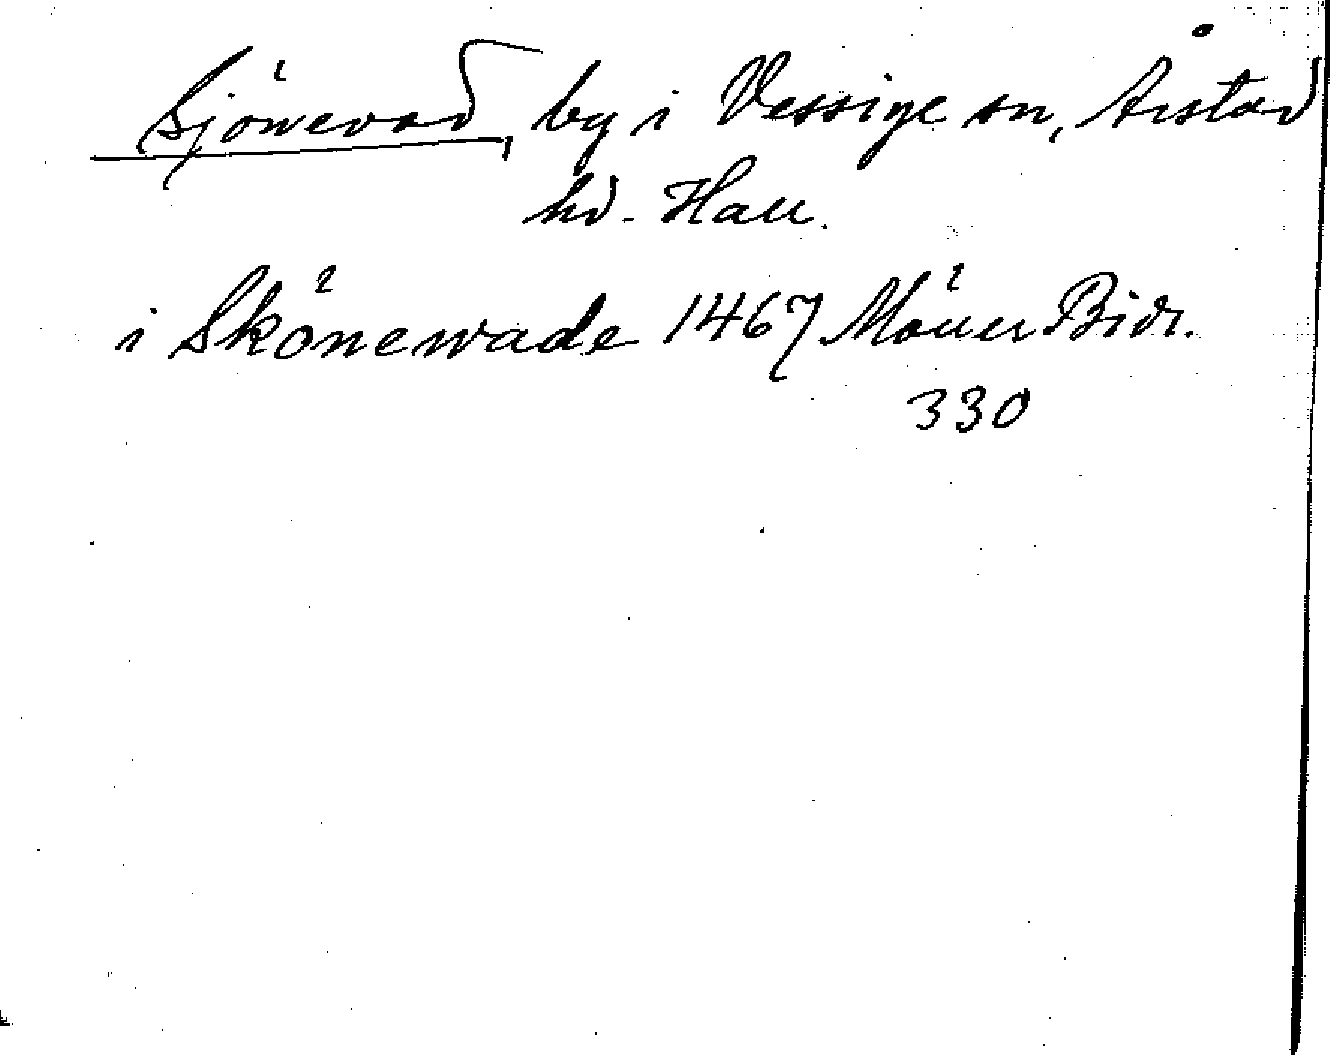 Sjönevad, by i Vessige sn, Årstad
hd. Hall.
i Skönewade 1467 Möller Bidr.
330